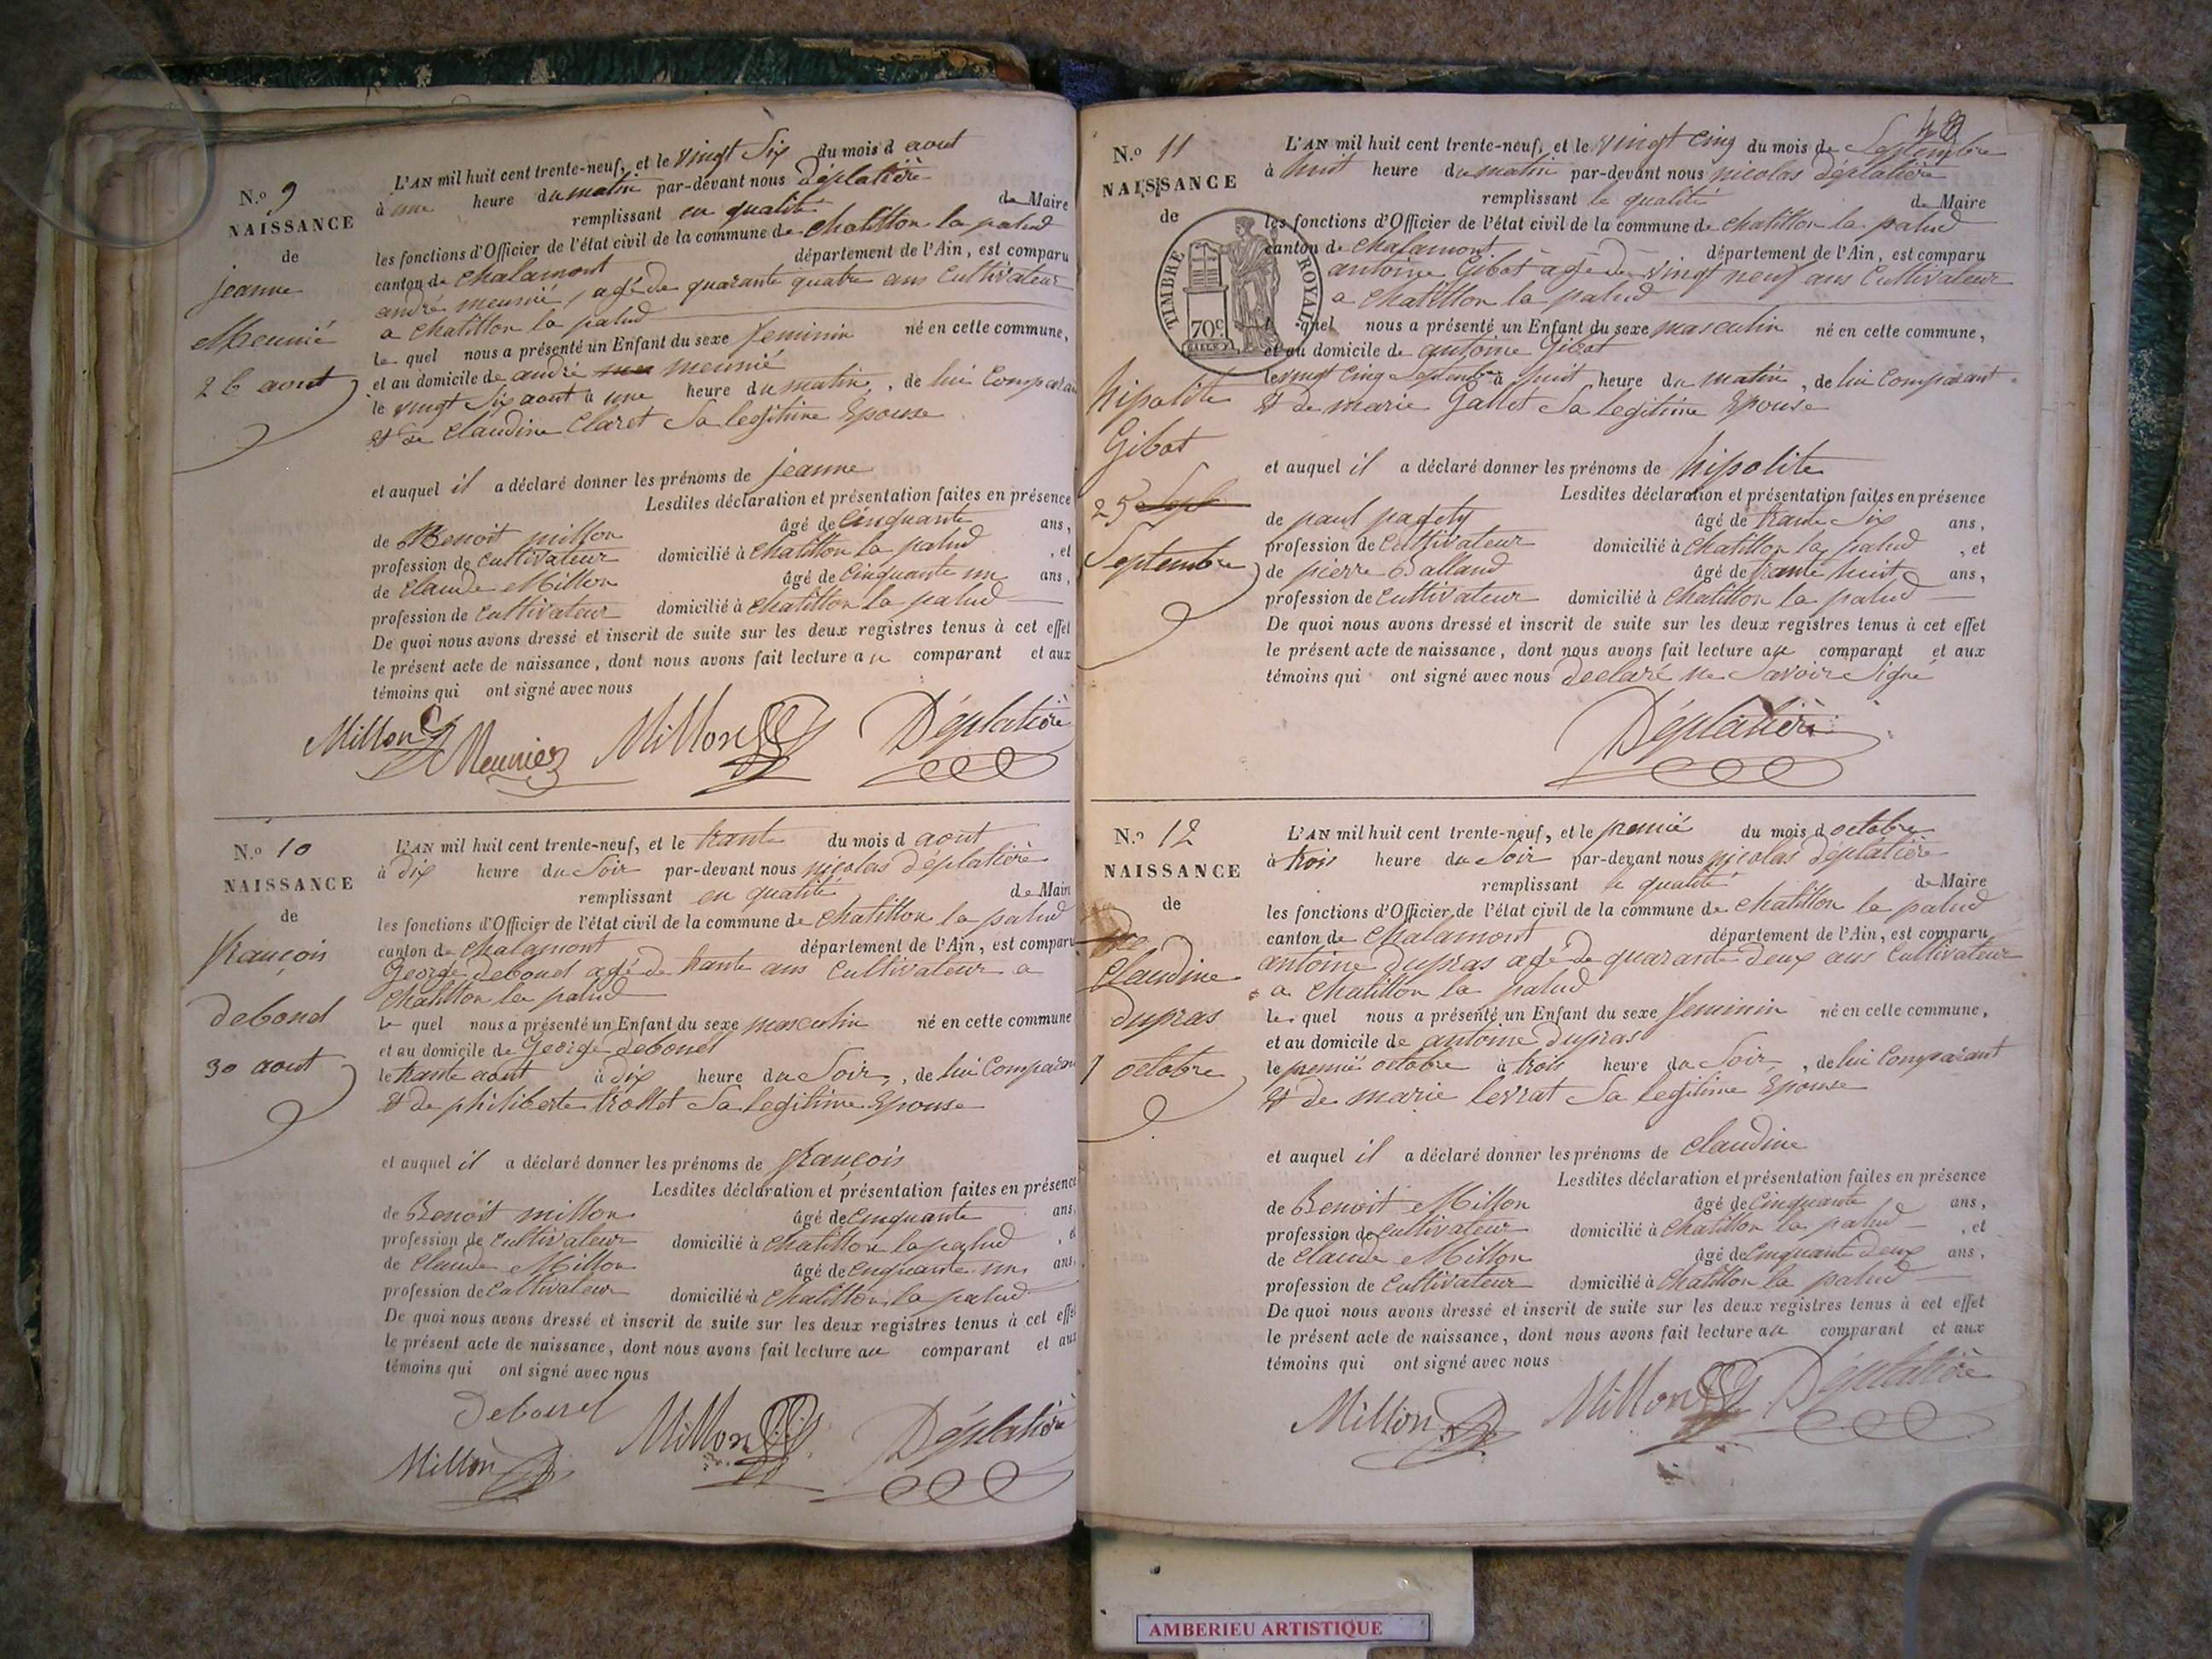 N.o 9
NAISSANCE
de
jeanne
Meunié
26 aout
L'AN mil huit cent trente-neuf, et le vingt Six du mois d aout
à une heure du matin par-devant nous Déplatière
remplissant en qualité de Maire
les fonctions d'Officier de l'état civil de la commune de chatillon la palud
canton de chalamont département de l'Ain, est comparu
andré meunié, agé de quarante quatre ans Cultivateur
a chatillon la palud
le quel nous a présenté un Enfant du sexe feminin né en cette commune,
et au domicile de andré meunié
le vingt Six aout à une heure du matin, de lui Comparant
et de Claudine Claret Sa legitime Epouse
et auquel il a déclaré donner les prénoms de jeanne
Lesdites déclaration et présentation faites en présence
de Benoit millon âgé de Cinquante ans,
profession de cultivateur domicilié à chatillon la palud, et
de claude Millon âgé de Cinquante un ans,
profession de cultivateur domicilié à chatillon la palud
De quoi nous avons dressé et inscrit de suite sur les deux registres tenus à cet effet
le présent acte de naissance, dont nous avons fait lecture au comparant et aux
témoins qui ont signé avec nous
Millon Meunier Millon Déplatière
N.o 10
NAISSANCE
de
françois
debond
30 aout
L'AN mil huit cent trente-neuf, et le trante du mois d aout
à dix heure du Soir par-devant nous nicolas Déplatière
remplissant en qualité de Maire
les fonctions d'Officier de l'état civil de la commune de chatillon la palud
canton de chalamont département de l'Ain, est comparu
George debond agé de trante ans Cultivateur a
chatillon la palud
le quel nous a présenté un Enfant du sexe masculin né en cette commune
et au domicile de George debond
le trante aout à dix heure du Soir, de lui Comparant
et de philiberte trollet Sa legitime Epouse
et auquel il a déclaré donner les prénoms de françois
Lesdites déclaration et présentation faites en présence
de Benoit millon âgé de Cinquante ans,
profession de cultivateur domicilié à chatillon la palud, et
de claude Millon âgé de Cinquante un ans,
profession de Cultivateur domicilié à chatillon la palud
De quoi nous avons dressé et inscrit de suite sur les deux registres tenus à cet effet
le présent acte de naissance, dont nous avons fait lecture au comparant et aux
témoins qui ont signé avec nous
Millon Millon Déplatière
48
N.o 11
NAISSANCE
de
TIMBRE ROYAL
70c
hipolite
Gibot
25 Sept
Septembre
L'AN mil huit cent trente-neuf, et le vingt Cinq du mois de Septembre
à huit heure du matin par-devant nous nicolas Déplatière
remplissant le qualité de Maire
les fonctions d'Officier de l'état civil de la commune de chatillon la palud
canton de chalamont département de l'Ain, est comparu
antoine Gibot agé de vingt neuf ans Cultivateur
a chatillon la palud
quel nous a présenté un Enfant du sexe masculin né en cette commune,
et au domicile de antoine Gibot
le vingt Cinq Septembre à huit heure du matin, de lui Comparant
et de marie Gallet Sa legitime Epouse
et auquel il a déclaré donner les prénoms de hipolite
Lesdites déclaration et présentation faites en présence
de paul âgé de trante Six ans,
profession de Cultivateur domicilié à chatillon la palud, et
de pierre Balland âgé de trante huit ans,
profession de Cultivateur domicilié à chatillon la palud
De quoi nous avons dressé et inscrit de suite sur les deux registres tenus à cet effet
le présent acte de naissance, dont nous avons fait lecture au comparant et aux
témoins qui ont signé avec nous declaré ne Savoir Signé
Déplatière
N.o 12
NAISSANCE
de
Claudine
dupras
1 octobre
L'AN mil huit cent trente-neuf, et le premié du mois d octobre
à trois heure du Soir par-devant nous nicolas Déplatière
remplissant le qualité de Maire
les fonctions d'Officier de l'état civil de la commune de chatillon la palud
canton de Chalamont département de l'Ain, est comparu
antoine dupras agé de quarante Deux ans Cultivateur
a chatillon la palud
le quel nous a présenté un Enfant du sexe feminin né en cette commune,
et au domicile de antoine dupras
le premié octobre à trois heure du Soir, de lui Comparant
et de marie levrat Sa legitime Epouse
et auquel il a déclaré donner les prénoms de claudine
Lesdites déclaration et présentation faites en présence
de Benoit Millon âgé de Cinquante ans,
profession de cultivateur domicilié à chatillon la palud, et
de claude Millon âgé de Cinquante Deux ans,
profession de Cultivateur domicilié à chatillon la palud
De quoi nous avons dressé et inscrit de suite sur les deux registres tenus à cet effet
le présent acte de naissance, dont nous avons fait lecture au comparant et aux
témoins qui ont signé avec nous
Millon Millon Déplatière
AMBERIEU ARTISTIQUE